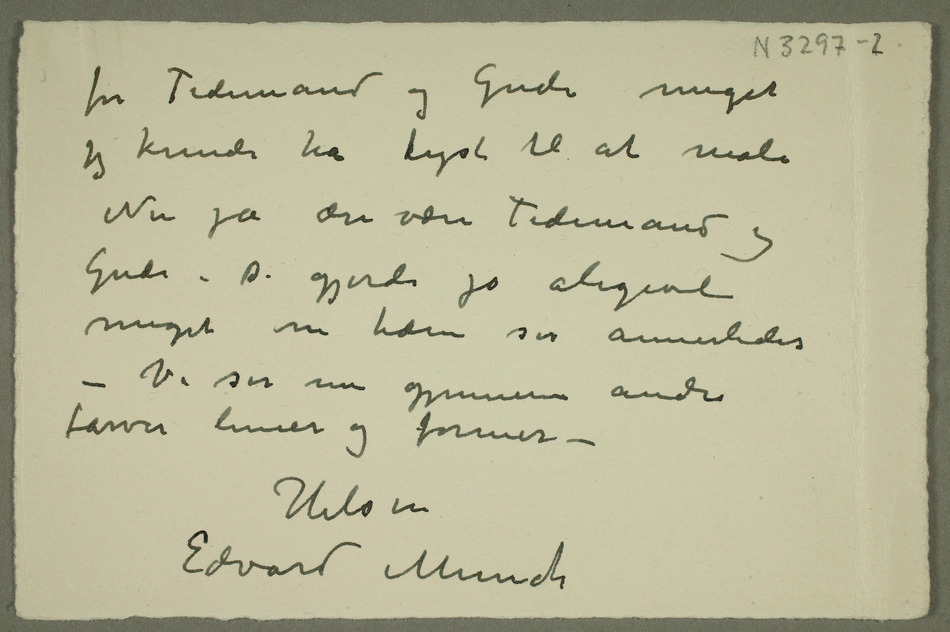 N 3297-2
for Tidemand og Gude meget
jeg kunde ha lyst til at male
Nu ja ære være Tidemand og
Gude – De gjorde jo aligevel
meget om tiden ser annerledes
– Vi ser nu gjennem andre
farver linier og former –
Hilsen
Edvard Munch